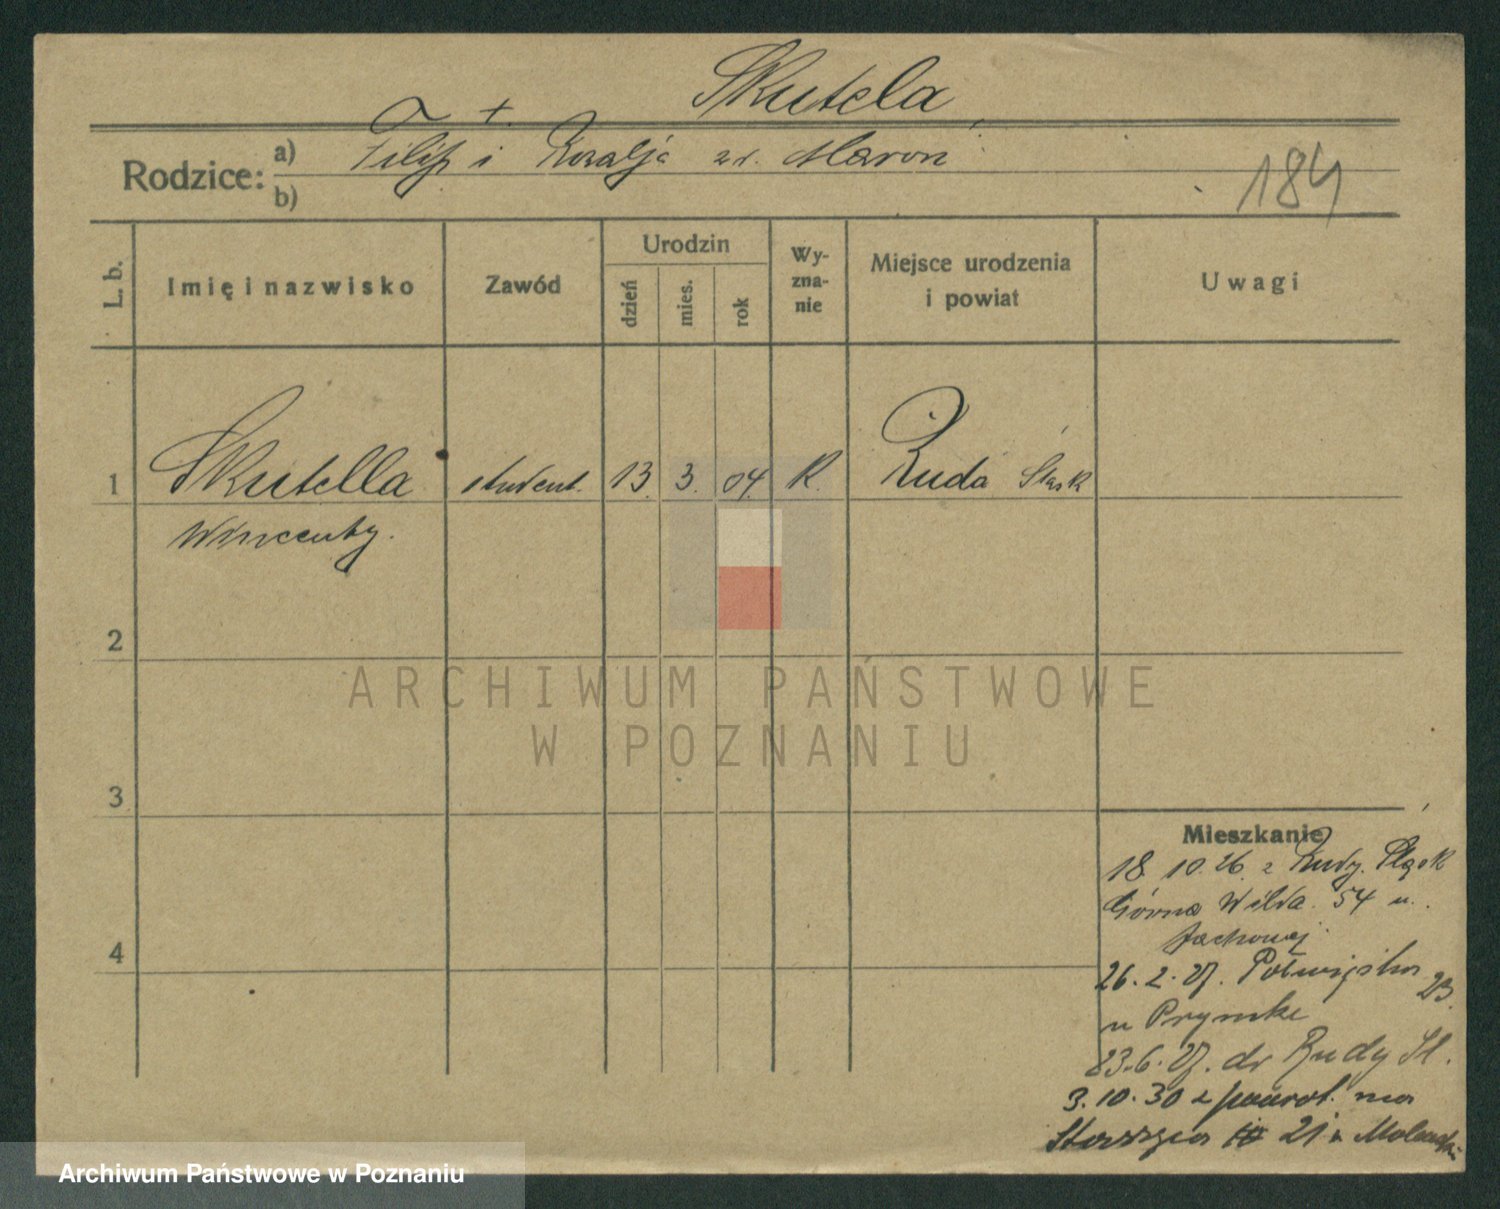 Skutela
Rodzice: a) Filip i Rozalja zd. Maron
b)
184
L. b.
Imię i nazwisko
Zawód
Urodzin
dzień
mies.
rok
Wy-
zna-
nie
Miejsce urodzenia
i powiat
Uwagi
1 Skutella student. 13. 3. 04. K. Ruda Śląsk
Wincenty.
2
3
4
ARCHIWUM PAŃSTWOWE
W POZNANIU
Mieszkanie
18. 10. 26. z Rudy. Śląsk
Górna Wilda 54 u.
26. 2. 27. Półwiejska 23.
u Prymke
23. 6. 27. do Rudy Śl.
3. 10. 30 z powrot. na
21 u
Archiwum Państwowe w Poznaniu